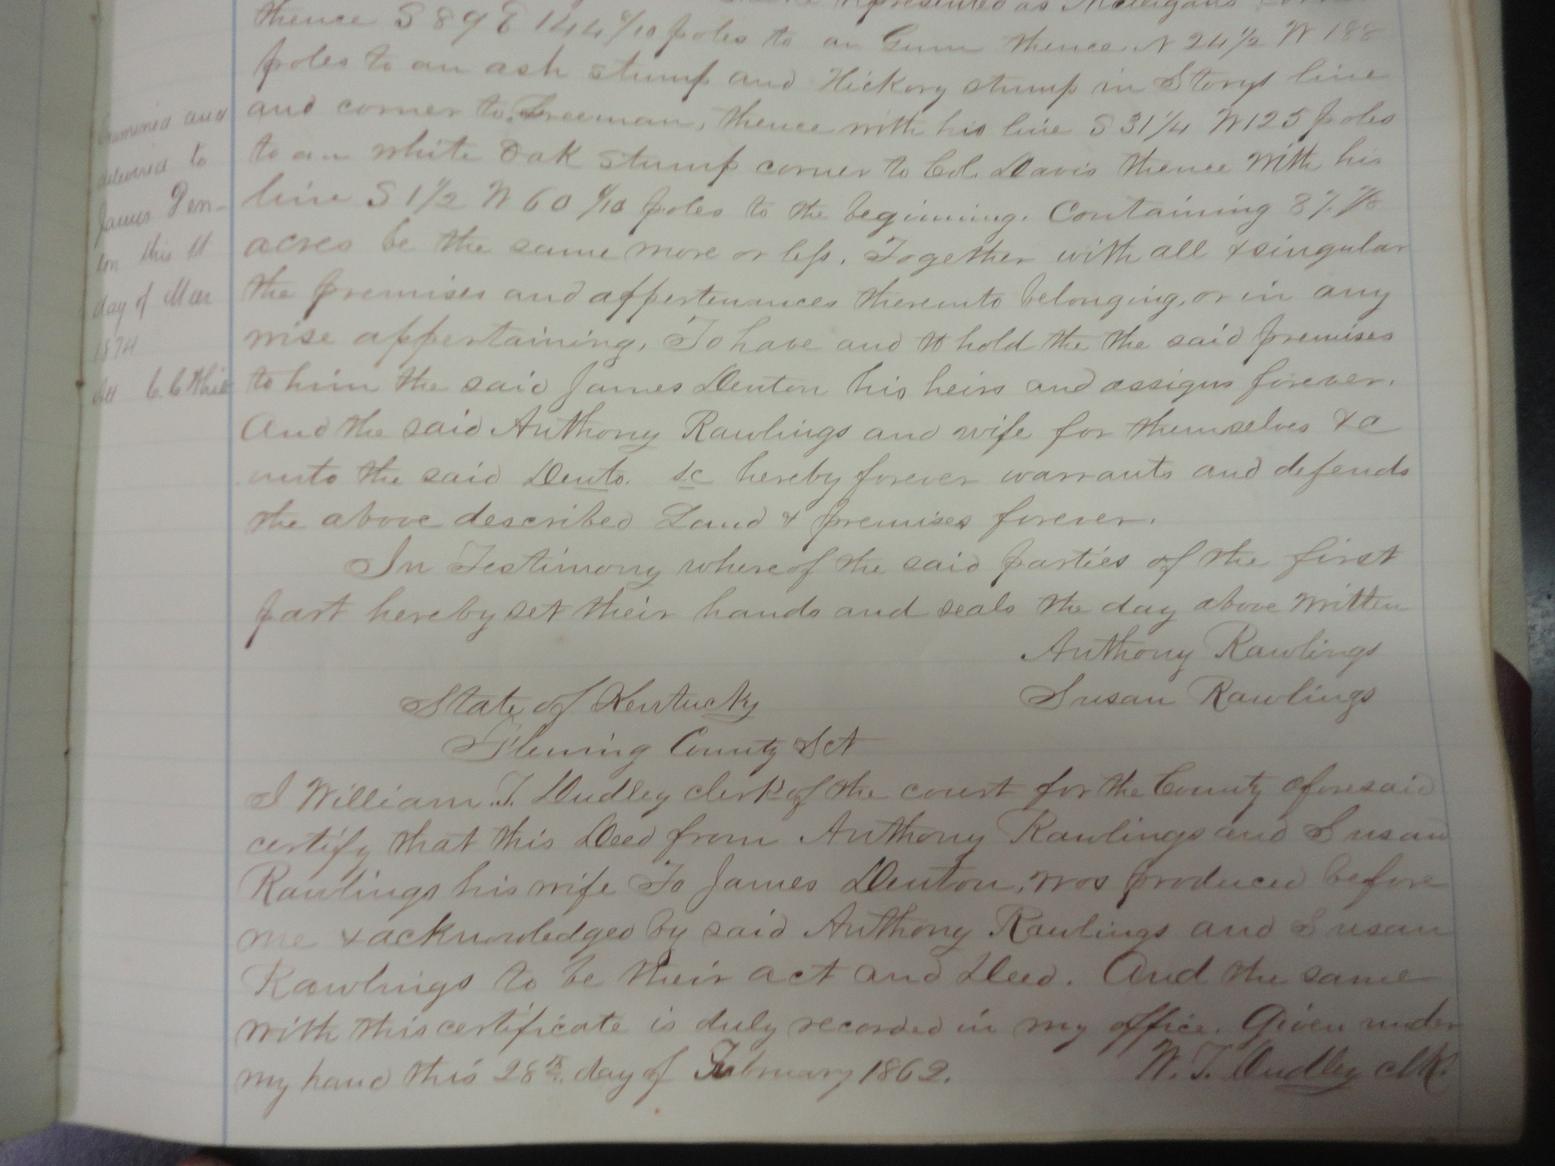 represented as Milligans
thence S 89 E 144 4/10 poles to an Gum thence N 24 1/2 W 188
poles to an ash stump and Hickory stump in Storys line
and corner to Freeman, thence with his line S 31 1/4 W 125 poles
to an white Oak stump corner to Col. Davis thence with his
line S 1 1/2 W 60 6/10 poles to the beginning. Containing
acres be the same more or less. Together with all & singular
the premises and appertenances thereunto belonging, or in any
wise appertaining, To have and to hold the the said premises
to him the said James Denton his heirs and assigns forever.
And the said Anthony Rawlings and wife for themselves &c
unto the said Dento. &c hereby forever warrants and defends
the above described Land & premises forever.
In Testimony whereof the said parties of the first
part hereby set their hands and seals the day above written
Anthony Rawlings
Susan Rawlings
State of Kentucky
Fleming County Sct
I William T. Dudley clerk of the court for the County aforesaid
certify that this Deed from Anthony Rawlings and Susan
Rawlings his wife To James Denton, was produced before
me & acknowledged by said Anthony Rawlings and Susan
Rawlings to be their act and Deed. And the same
with this certificate is duly recorded in my office. Given under
my hand this 28th day of February 1862.
W. T. Dudley clk.
Examined and
delivered to
James Den-
ton this 11
day of Mar
1874